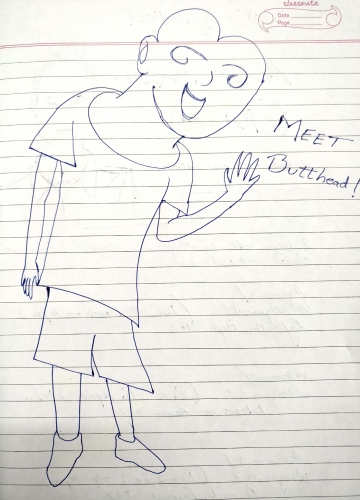 classmate
Date
Page
MEET
Butthead!